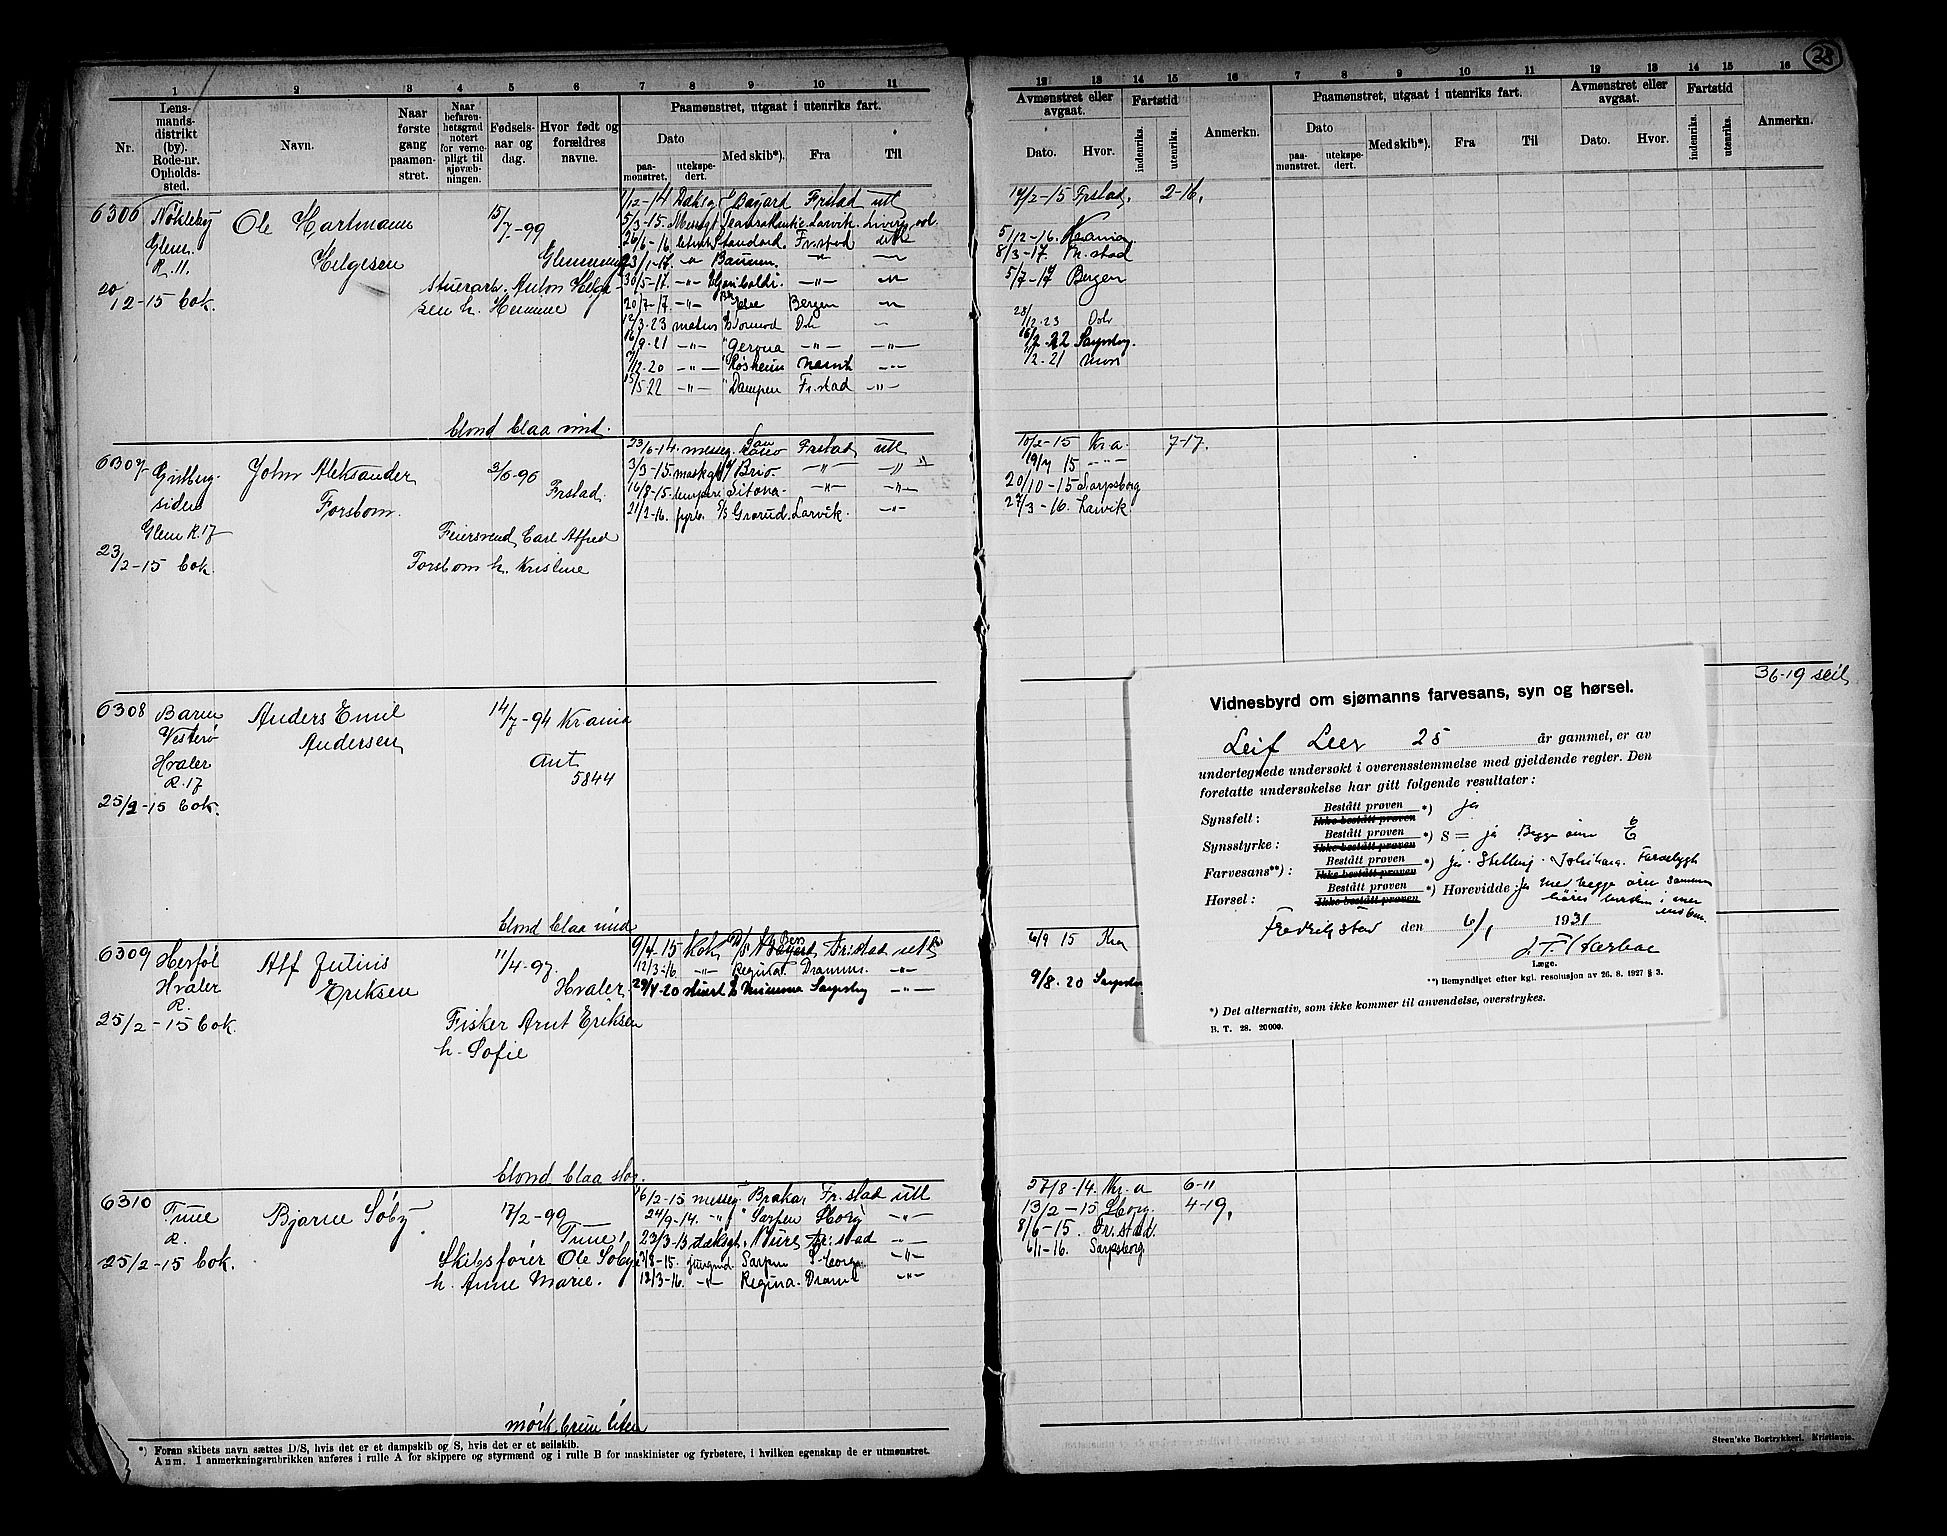 28
1 2 3 4 5 6 7 8 9 10 11
Nr.
Lens-
mands-
distrikt
(by).
Rode-nr.
Opholds-
sted.
Navn.
Naar
første
gang
paamøn-
stret.
Naar
befaren-
hetsgrad
notert
for verne-
pligt til
sjøvæb-
ningen.
Fødsels-
aar og
dag.
Hvor født og
forældres
navne.
Paamønstret, utgaat i utenriks fart.
Dato
paa-
mønstret.
utekspe-
dert.
Med skib*).
Fra
Til
12 13 14 15 16 7 8 9 10 11 12 13 14 15 16
Avmønstret eller
avgaat.
Dato. Hvor.
Fartstid
indenriks.
utenriks.
Anmerkn.
Paamønstret, utgaat i utenriks fart.
Dato
paa-
mønstret.
utekspe-
dert.
Med skib*).
Fra
Til
Avmønstret eller
avgaat.
Dato. Hvor.
Fartstid
indenriks.
utenriks.
Anmerkn.
6306 Nökleby Ole Hartmann 15/7-99
Glem. Helgesen Glemminge
R. 11.
20/12-15 bok.
stuerarb. Anton Helge-
sen h.
blond blaa mid.
1/12-14 Bayard Frstad utl
5/3-15. Larvik.
26/6-16 Standard Fr.stad utl
23/1-17. -"- -"-
30/5-17. -"- Garibaldi. -"-
20/7-17. -"- Bergen
12/3-23 matros
16/9-21 -"- Gerona -"- -"-
12-20 -"-
15/5-22 -"- Dampen Fr.stad -"-
17/2-15 Frstad. 2-16,
5/12-16. Kr.ania
8/3-17. Fr.stad
5/7-17 Bergen
28/12-23
16/2-22 Sarpsbg.
/2-21 Moss
6307 John Aleksander 3/6-96
siden Forsbom. Frstad.
Glem R.17
23/2-15 bok
Feiersvend Carl Alfred
Forsbom h. Kristine
23/6-14. messeg. Frstad utl
3/3-15. Brio -"- -"-
16/8-15. Sitona -"- -"-
21/2-16. fyrb. D/S Grorud Larvik. -"-
10/2-15 Kr.a. 7-17.
19/7 15 -"-
20/10-15 Sarpsborg
27/3-16. Larvik
36-19 seil
6308 Anders Emil 14/7-94 Krania
Vesterö Andersen
Hvaler Ant
R.17 5844
25/2-15 bok.
blond blaa mid
6309 Herföl Alf Julius 11/4-97.
Hvaler Eriksen Hvaler
R.
25/2-15 bok.
Fisker Arnt Eriksen
h. Sofie
blond blaa stor.
15 Kok Fr.stad utl
12/3-16. -"- Regina Dramm. -"-
29/4-20 Sarpsbg -"-
6/9 15 Kra
9/8.20 Sarpsborg
6310 Tune Bjarne Soby. 17/2-99
R. Tune
25/2-15 bok.
Skibsförer Ole Soby
h. Anne Marie.
mörk brun liten
16/2-15 messeg. Brakar Fr.stad utl
24/9-14. -"- Sarpen Sborg -"-
23/3-15 dæksgt. Fr.stad -"-
7/8-15. jungmd Sarpen S-borg -"-
12/3-16. -"- Regina. Dram. -"-
27/8-14. Kr.a 6-11
13/2-15 Sborg. 4-19,
8/6-15. Fr.stad.
6/1-16. Sarpsborg
Vidnesbyrd om sjømanns farvesans, syn og hørsel.
Leif Leer 25 år gammel, er av
undertegnede undersøkt i overensstemmelse med gjeldende regler. Den
foretatte undersøkelse har gitt følgende resultater:
Synsfelt: Bestått prøven Ikke bestått prøven *) ja
Synsstyrke: Bestått prøven Ikke bestått prøven *) S = ja Begge øine 6/6
Farvesans**): Bestått prøven Ikke bestått prøven *) ja. Stilling. Ishihara.
Hørsel: Bestått prøven Ikke bestått prøven *) Hørevidde: Ja med begge ören sammen
Fredrikstad den 6/1 1931
Læge.
**) Bemyndiget efter kgl. resolusjon av 26. 8. 1927 § 3.
*) Det alternativ, som ikke kommer til anvendelse, overstrykes.
B. T. 28. 20000.
*) Foran skibets navn sættes D/S, hvis det er et dampskib og S, hvis det er et seilskib.
Anm. I anmerkningsrubrikken anføres i rulle A for skippere og styrmænd og i rulle B for maskinister og fyrbøtere, i hvilken egenskap de er utmønstret.
Steen'ske Bogtrykkeri. Kristiania.